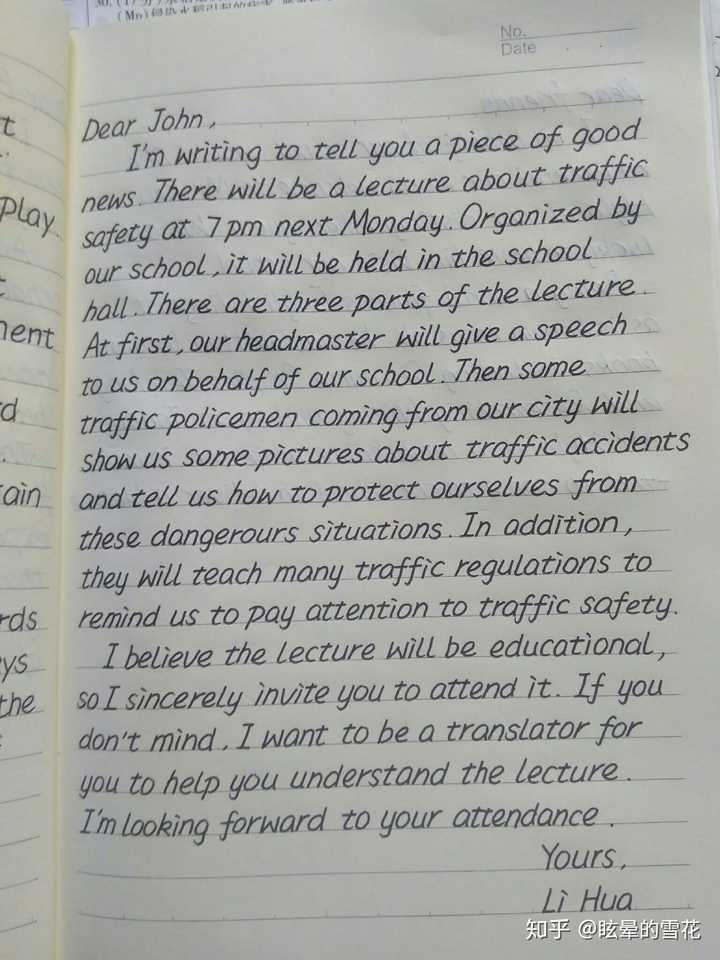 No.
Date
Dear John,
I'm writing to tell you a piece of good
news. There will be a lecture about traffic
safety at 7pm next Monday. Organized by
our school, it will be held in the school
hall. There are three parts of the lecture.
At first, our headmaster will give a speech
to us on behalf of our school. Then some
traffic policemen coming from our city will
show us some pictures about traffic accidents
and tell us how to protect ourselves from
these dangerours situations. In addition,
they will teach many traffic regulations to
remind us to pay attention to traffic safety.
I believe the lecture will be educational,
so I sincerely invite you to attend it. If you
don't mind, I want to be a translator for
you to help you understand the lecture.
I'm looking forward to your attendance.
Yours,
Li Hua
t
play
ment
d
ain
rds
ys
the
知乎 @眩晕的雪花